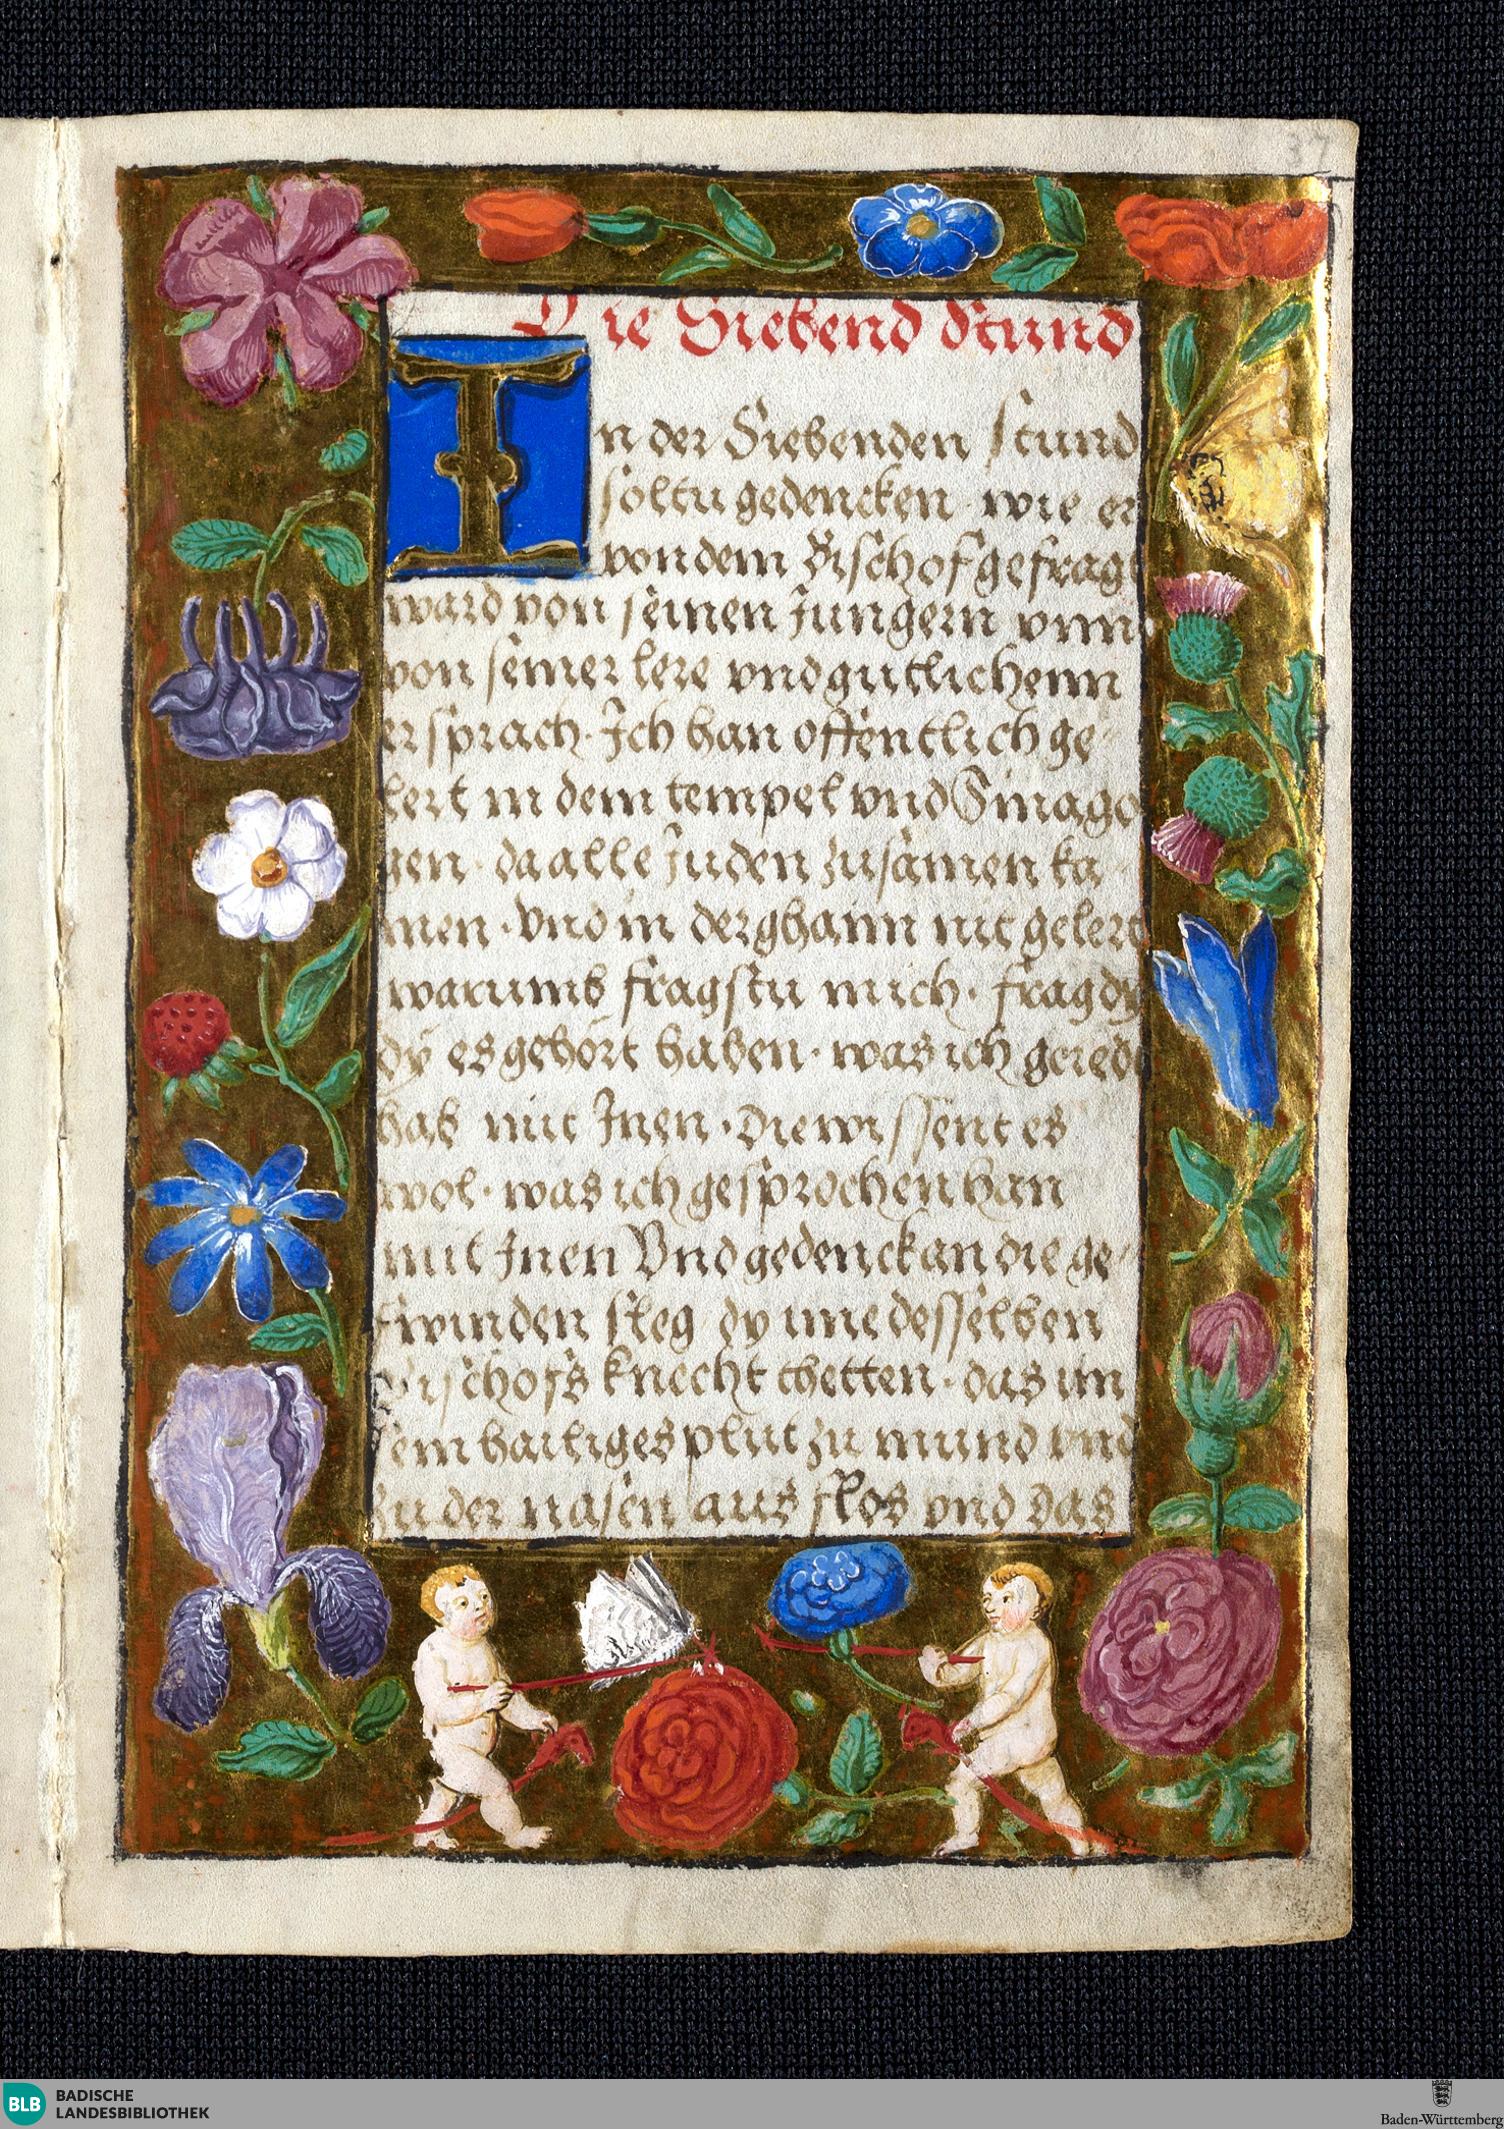 37
Die Siebend Stund
In der Siebenden stund
soltu gedencken · wie er
von dem Bischof gefragt
ward von seinen Jungern vnn
von seiner lere vnd gutlichenn
er sprach · Ich han offentlich ge
lert in dem tempel vnd Sinago
gen · da alle Juden zusamen ka
men · Vnd in der ghaim nit gelert
warumb fragstu mich · frag dy
dy es gehört haben · was ich geredt
hab mit Inen · Die wissent es
wol · was ich gesprochen han
mit Inen Vnd gedenck an die ge
swinden sleg dy ime desselben
Bischofs knecht thetten · das im
sein hailiges plut zu mund vnd
zu der nasen aus flos vnd das
BLB
BADISCHE
LANDESBIBLIOTHEK
Baden-Württemberg